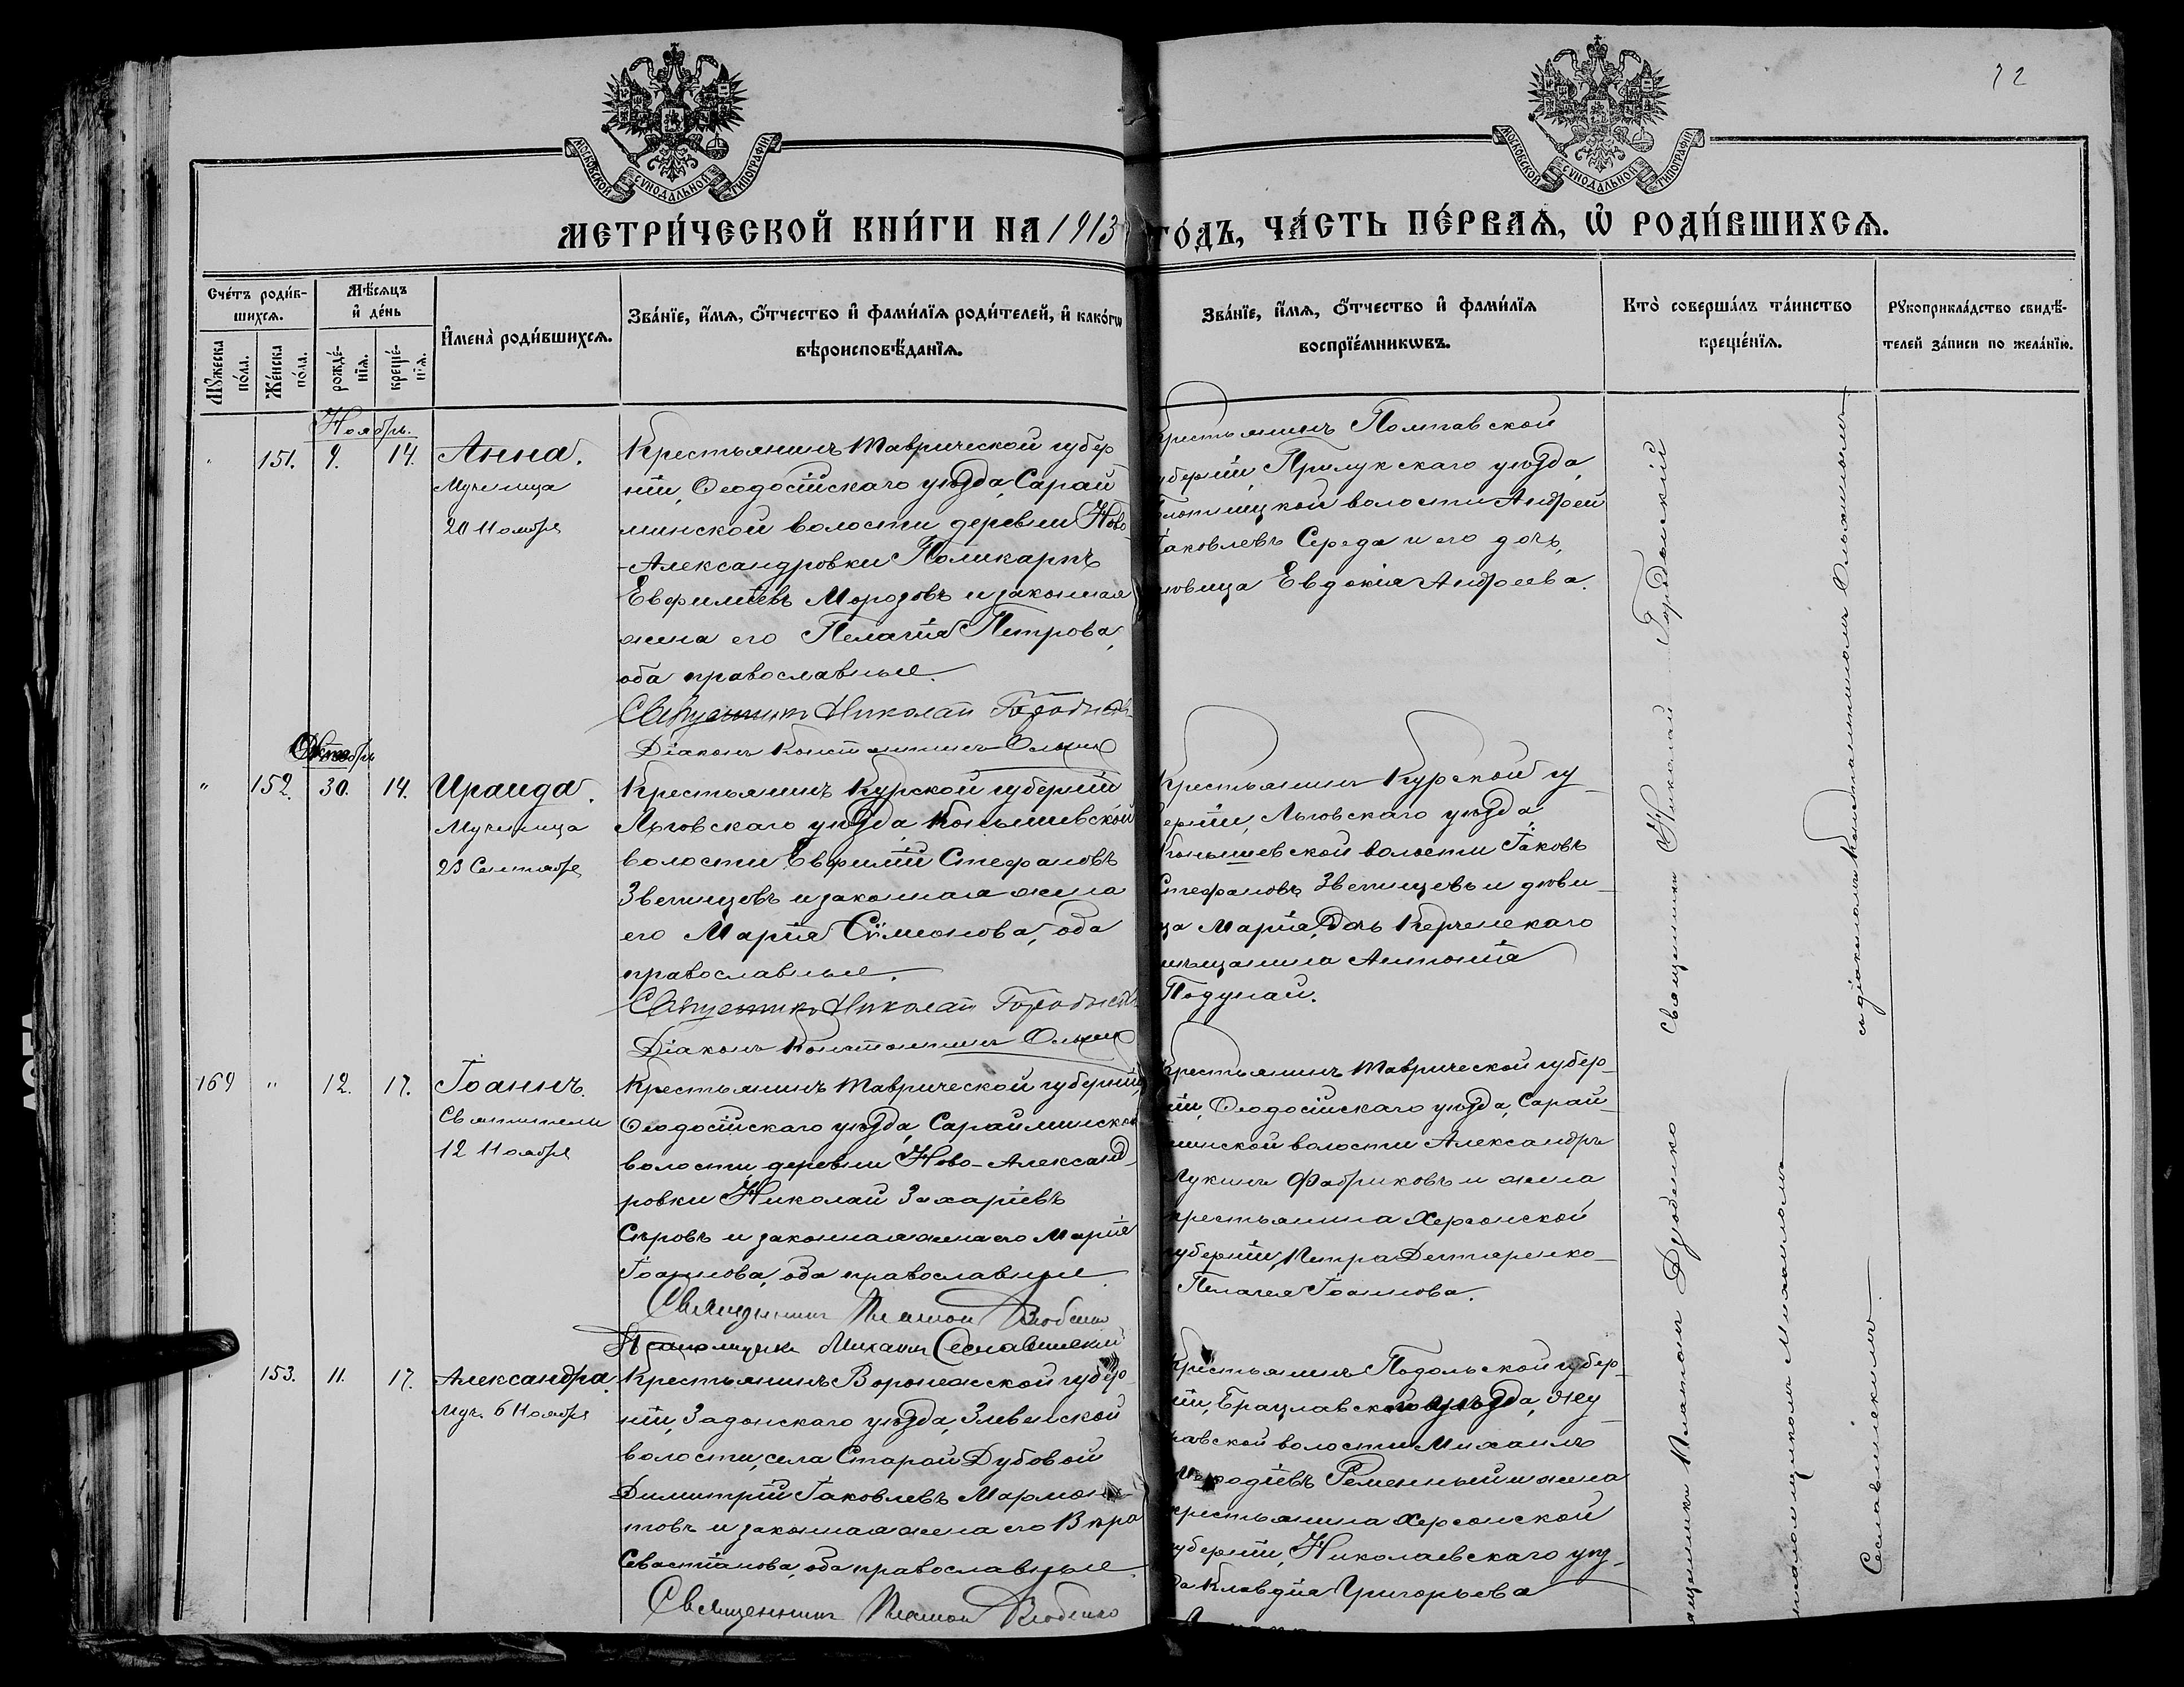 72
МОСКОВСКОЙ СУНОДАЛЬНОЙ ТИПОГРАФІИ
МОСКОВСКОЙ СУНОДАЛЬНОЙ ТИПОГРАФІИ
МЕТРИ́ЧЕСКОЙ КНИ́ГИ НА 1913 ГО́ДЪ, ЧА́СТЬ ПЕ́РВАѦ, Ѡ РОДИ́ВШИХСѦ.
Сче́тъ роди́в-
шихсѧ.
Мꙋ́жеска
по́ла.
Же́нска
по́ла.
Мѣ́сѧцъ
и҆ де́нь
рожде́-
нїѧ.
креще́-
нїѧ.
И҆мена̀ роди́вшихсѧ.
Зва́нїе, и҆́мѧ, ѻ҆́тчество и҆ фами́лїѧ роди́телей, и҆ како́гѡ
вѣроисповѣ́данїѧ.
Зва́нїе, и҆́мѧ, ѻ҆́тчество и҆ фами́лїѧ
воспрїе́мникѡвъ.
Кто̀ соверша́лъ та́инство
креще́нїѧ.
Рꙋкоприкла́дство свидѣ́-
телей за́писи по жела́нїю.
Ноябрь.
" 151. 9. 14. Анна.
Мученица
20 Ноября
Крестьянинъ Таврической губер
ніи, Ѳеодосійскаго уѣзда, Сарай
минской волости деревни Ново-
-Александровки Поликарпъ
Евфиміевъ Морозовъ и законная
жена его Пелагія Петрова,
оба православные.
Священникъ Николай
Діаконъ Константинъ
Крестьянинъ Полтавской
губерніи, Прилукскаго уѣзда,
волости Андрей
Іаковлевъ Середа и его дочь,
дѣвица Евдокія Андреева.
Октябрь
" 152. 30. 14. Ираида.
Мученица
23 Сентября
Крестьянинъ Курской губерніи
Льговскаго уѣзда, Конышевской
волости Евфимій Стефановъ
Звегинцевъ и законная жена
его Марія Сѵмеонова, оба
православные.
Священникъ Николай
Діаконъ Константинъ
Крестьянинъ Курской гу-
берніи, Льговскаго уѣзда,
Конышевской волости Іаковъ
Стефановъ Звегинцевъ и дѣви-
ца Марія, дочь Керченскаго
мѣщанина Антонія
Подунай.
169 " 12. 17. Іоаннъ.
Святителя
12 Ноября
Крестьянинъ Таврической губерніи,
Ѳеодосійскаго уѣзда, Сарайминской
волости деревни Ново-Александ-
ровки Николай Захаріевъ
Сѣровъ и законная жена его Марія
Іоаннова, оба православные.
Священникъ Платон Дзюбенко
Псаломщикъ Михаил Сеславинскій
Крестьянинъ Таврической губер-
ніи, Ѳеодосійскаго уѣзда, Сарай-
минской волости Александръ
Лукинъ Фабриковъ и жена
крестьянина Херсонской
губерніи, Петра Дегтяренко-
Пелагея Іоаннова.
" 153. 11. 17. Александра.
Муч. 6 Ноября
Крестьянинъ Воронежской губер-
ніи, Задонскаго уѣзда,
волости, села Старой Дубовой
Димитрій Іаковлевъ
и законная жена его Вѣра
Севастіанова, оба православные.
Священникъ Платон Дзюбенко
Крестьянинъ Подольской губер-
ніи, Брацлавскаго уѣзда,
волости Михаилъ
Ременный и жена
крестьянина Херсонской
губерніи, Николаевскаго уѣз-
да Клавдія Григорьева
Священникъ Николай
съ діакономъ Константиномъ
Священникъ Платонъ Дзюбенко
псаломщикомъ Михаиломъ
Сеславинскимъ.